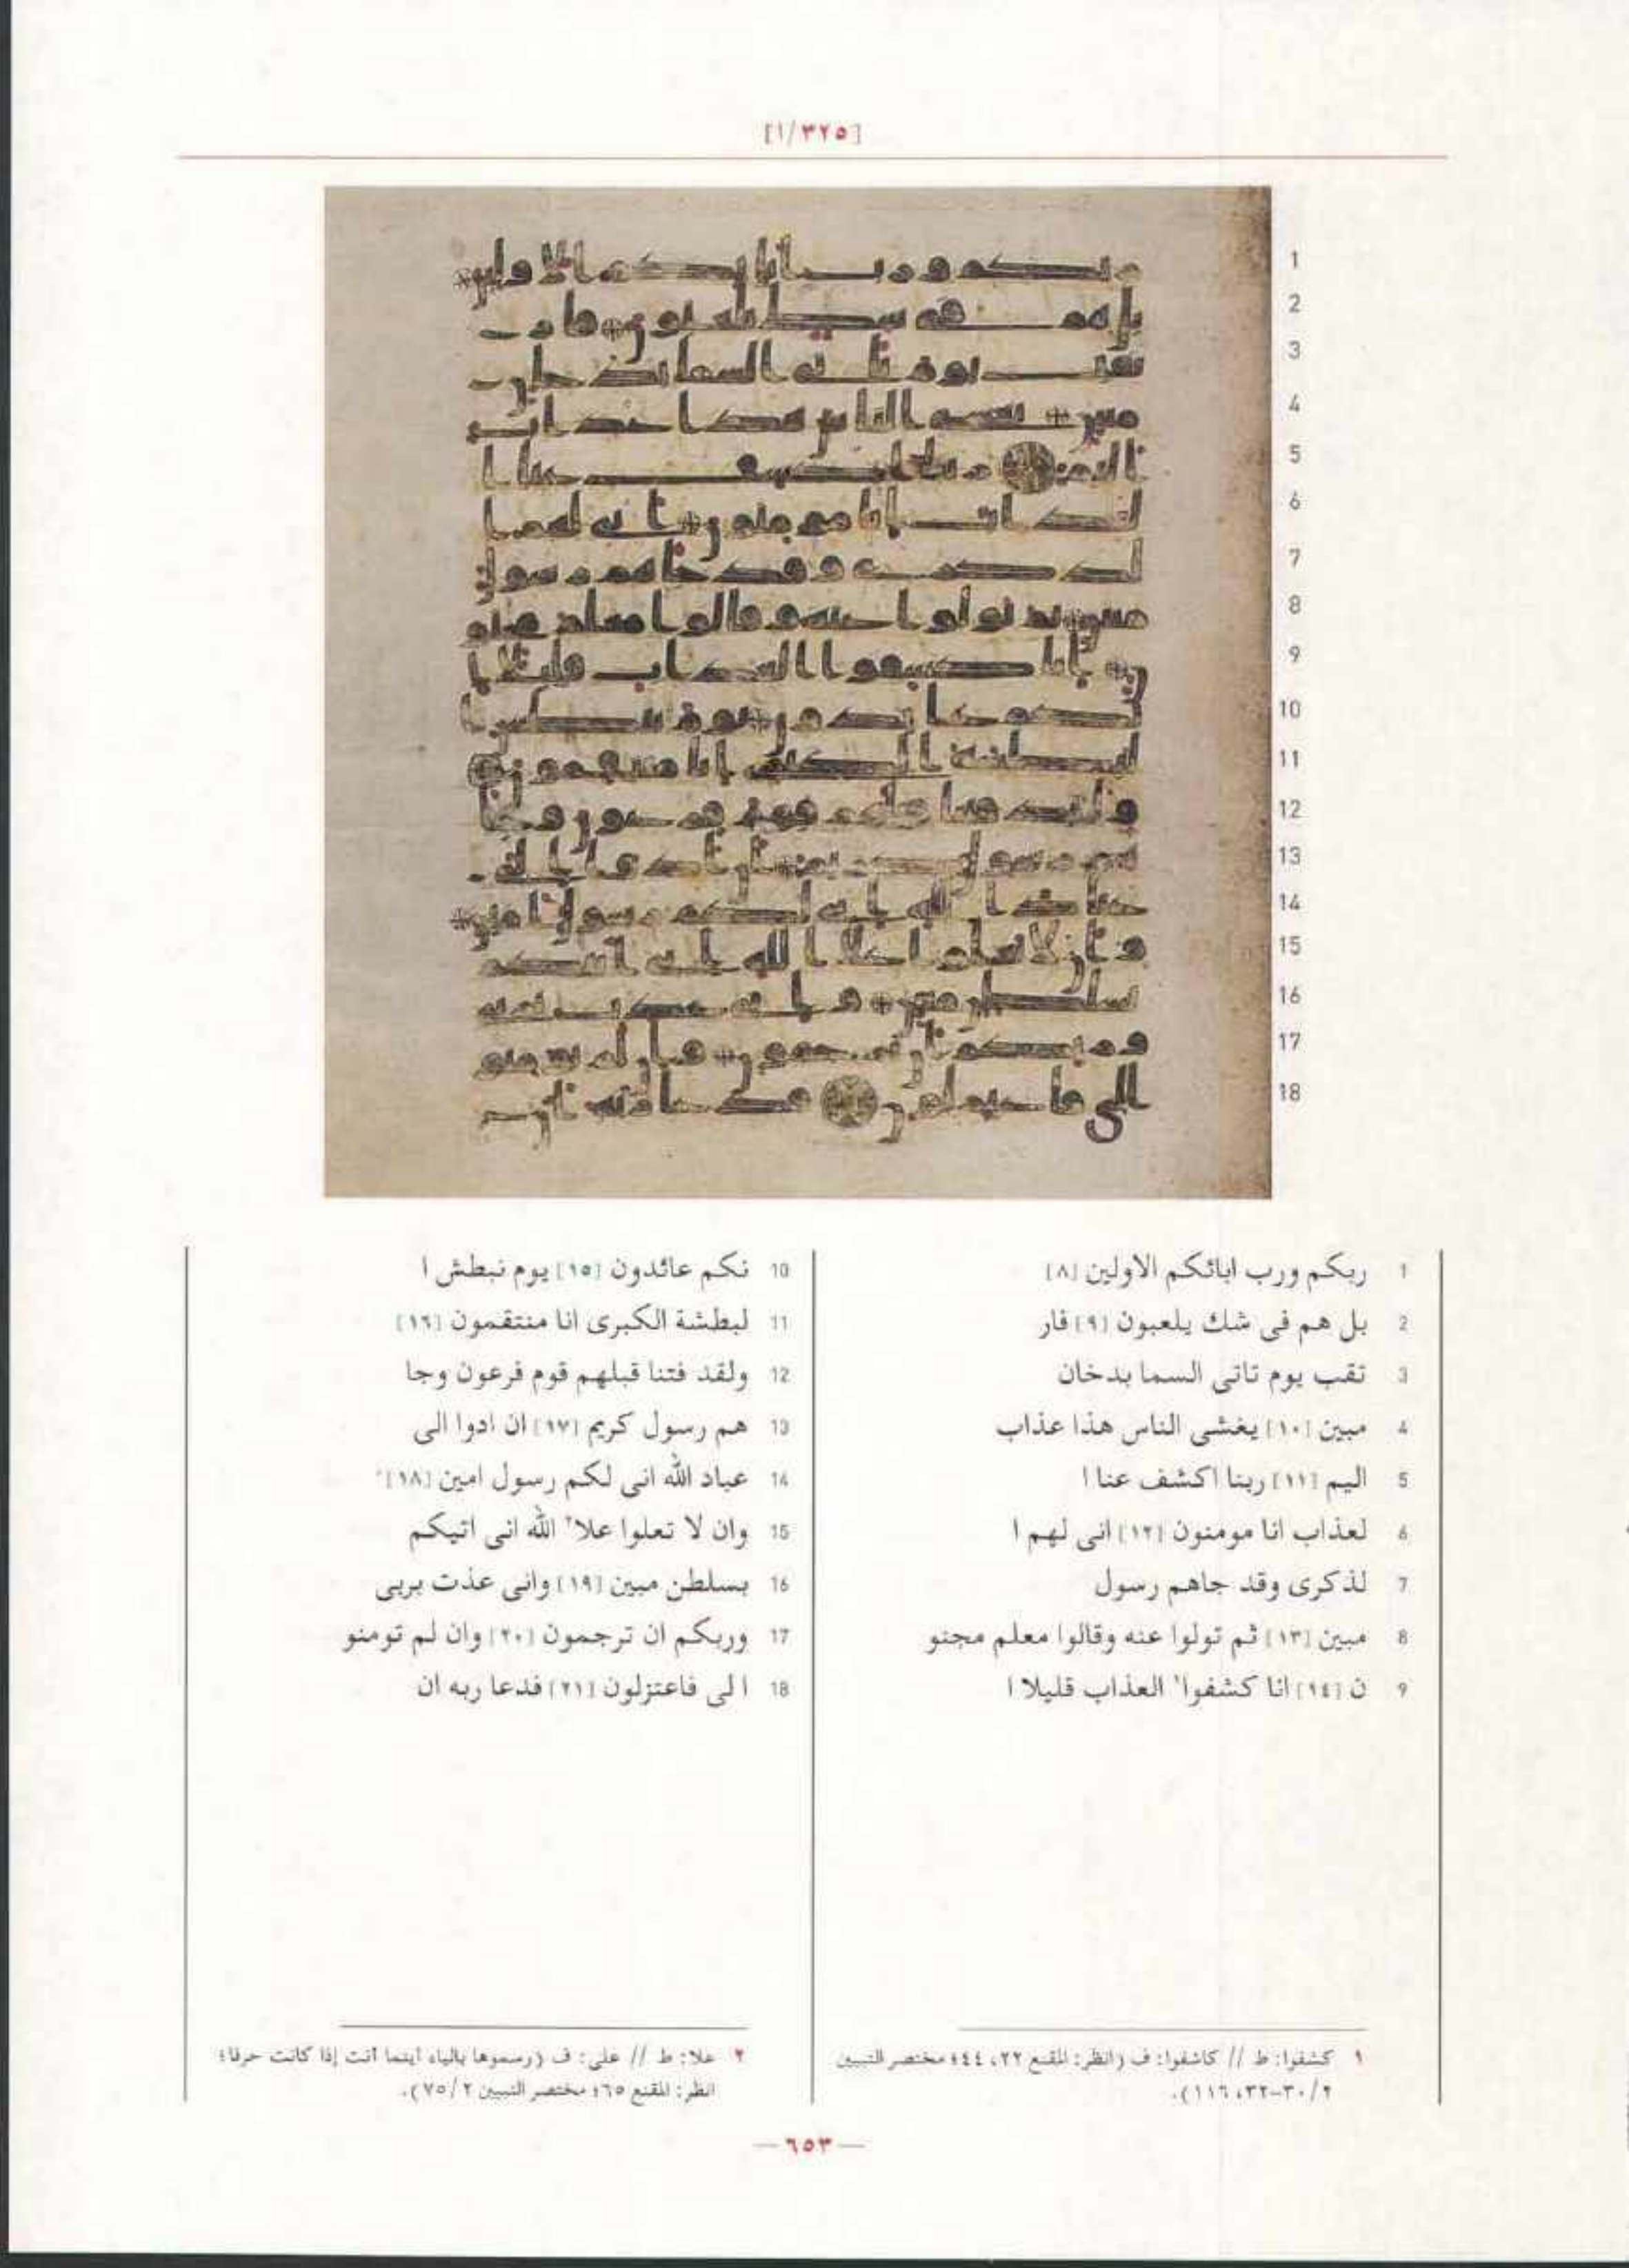 [٣٢٥/١]
1 ربكم ورب ابائكم الاولين [٨]
2 بل هم فى شك يلعبون [٩] فار
3 تقب يوم تاتى السما بدخان
4 مبين [١٠] يغشى الناس هذا عذاب
5 اليم [١١] ربنا اكشف عنا ا
6 لعذاب انا مومنون [١٢] انى لهم ا
7 لذكرى وقد جاهم رسول
8 مبين [١٣] ثم تولوا عنه وقالوا معلم مجنو
9 ن [١٤] انا كشفوا١ العذاب قليلا ا
10 نكم عائدون [١٥] يوم نبطش ا
11 لبطشة الكبرى انا منتقمون [١٦]
12 ولقد فتنا قبلهم قوم فرعون وجا
13 هم رسول كريم [١٧] ان ادوا الى
14 عباد الله انى لكم رسول امين [١٨]
15 وان لا تعلوا علا٢ الله انى اتيكم
16 بسلطن مبين [١٩] وانى عذت بربى
17 وربكم ان ترجمون [٢٠] وان لم تومنو
18 ا لى فاعتزلون [٢١] فدعا ربه ان
١ كشفوا: ط // كاشفوا: ف (انظر: المقنع ٢٢، ٤٤؛ مختصر التبيين
٢/٣٠-٣٢، ١١٦).
٢ علا: ط // على: ف (رسموها بالياء أينما أتت إذا كانت حرفا؛
انظر: المقنع ٦٥؛ مختصر التبيين ٢/٧٥).
— ٦٥٣ —